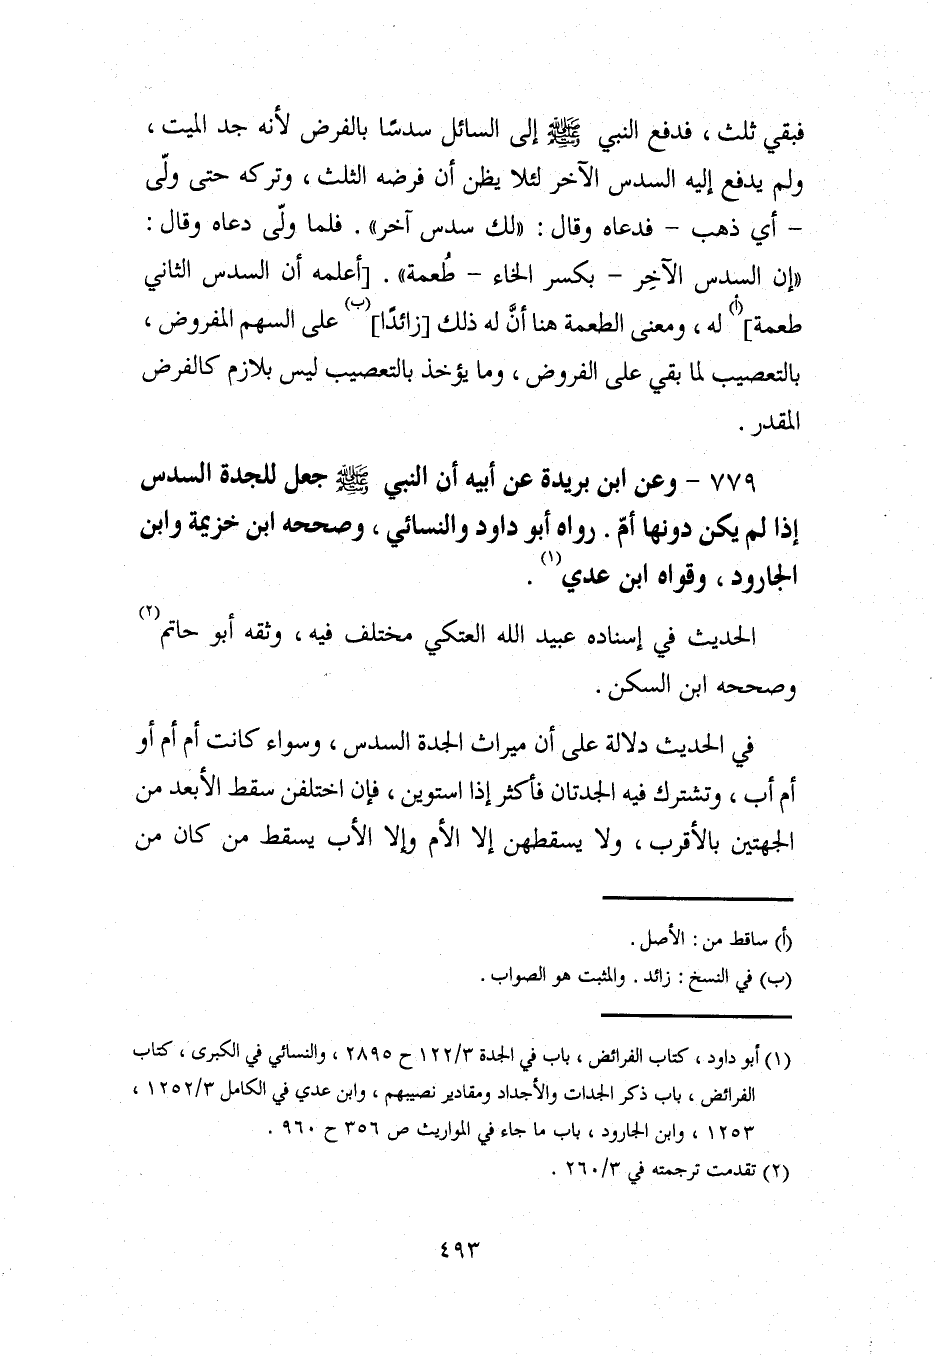 فبقي ثلث ، فدفع النبي ﷺ إلى السائل سدسًا بالفرض لأنه جد الميت ،
ولم يدفع إليه السدس الآخر لئلا يظن أن فرضه الثلث ، وتركه حتى ولّى
- أي ذهب - فدعاه وقال : «لك سدس آخر» . فلما ولّى دعاه وقال :
«إن السدس الآخِر - بكسر الخاء - طُعمة» . [أعلمه أن السدس الثاني
طعمة](أ) له ، ومعنى الطعمة هنا أنَّ له ذلك [زائدًا](ب) على السهم المفروض ،
بالتعصيب لما بقي على الفروض ، وما يؤخذ بالتعصيب ليس بلازم كالفرض
المقدر .
٧٧٩ - وعن ابن بريدة عن أبيه أن النبي ﷺ جعل للجدة السدس
إذا لم يكن دونها أمّ . رواه أبو داود والنسائي ، وصححه ابن خزيمة وابن
الجارود ، وقواه ابن عدي(١) .
الحديث في إسناده عبيد الله العتكي مختلف فيه ، وثقه أبو حاتم(٢)
وصححه ابن السكن .
في الحديث دلالة على أن ميراث الجدة السدس ، وسواء كانت أم أم أو
أم أب ، وتشترك فيه الجدتان فأكثر إذا استوين ، فإن اختلفن سقط الأبعد من
الجهتين بالأقرب ، ولا يسقطهن إلا الأم وإلا الأب يسقط من كان من
(أ) ساقط من : الأصل .
(ب) في النسخ : زائد . والمثبت هو الصواب .
(١) أبو داود ، كتاب الفرائض ، باب في الجدة ١٢٢/٣ ح ٢٨٩٥ ، والنسائي في الكبرى ، كتاب
الفرائض ، باب ذكر الجدات والأجداد ومقادير نصيبهم ، وابن عدي في الكامل ١٢٥٢/٣ ،
١٢٥٣ ، وابن الجارود ، باب ما جاء في المواريث ص ٣٥٦ ح ٩٦٠ .
(٢) تقدمت ترجمته في ٢٦٠/٣ .
٤٩٣